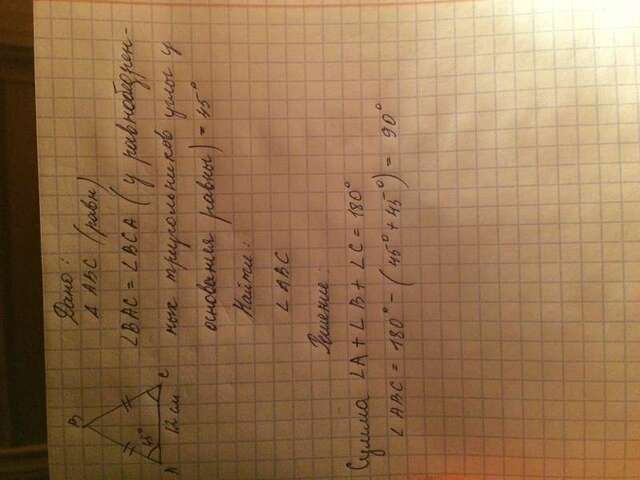 B
45°
A
C
12 см
Дано:
Δ ABC (равн)
∠BAC = ∠BCA ( у равнобедрен-
ных треугольников углы у
основания равны) = 45°
Найти:
∠ ABC
Решение:
Сумма ∠A + ∠B + ∠C = 180°
∠ABC = 180° - (45° + 45°) = 90°